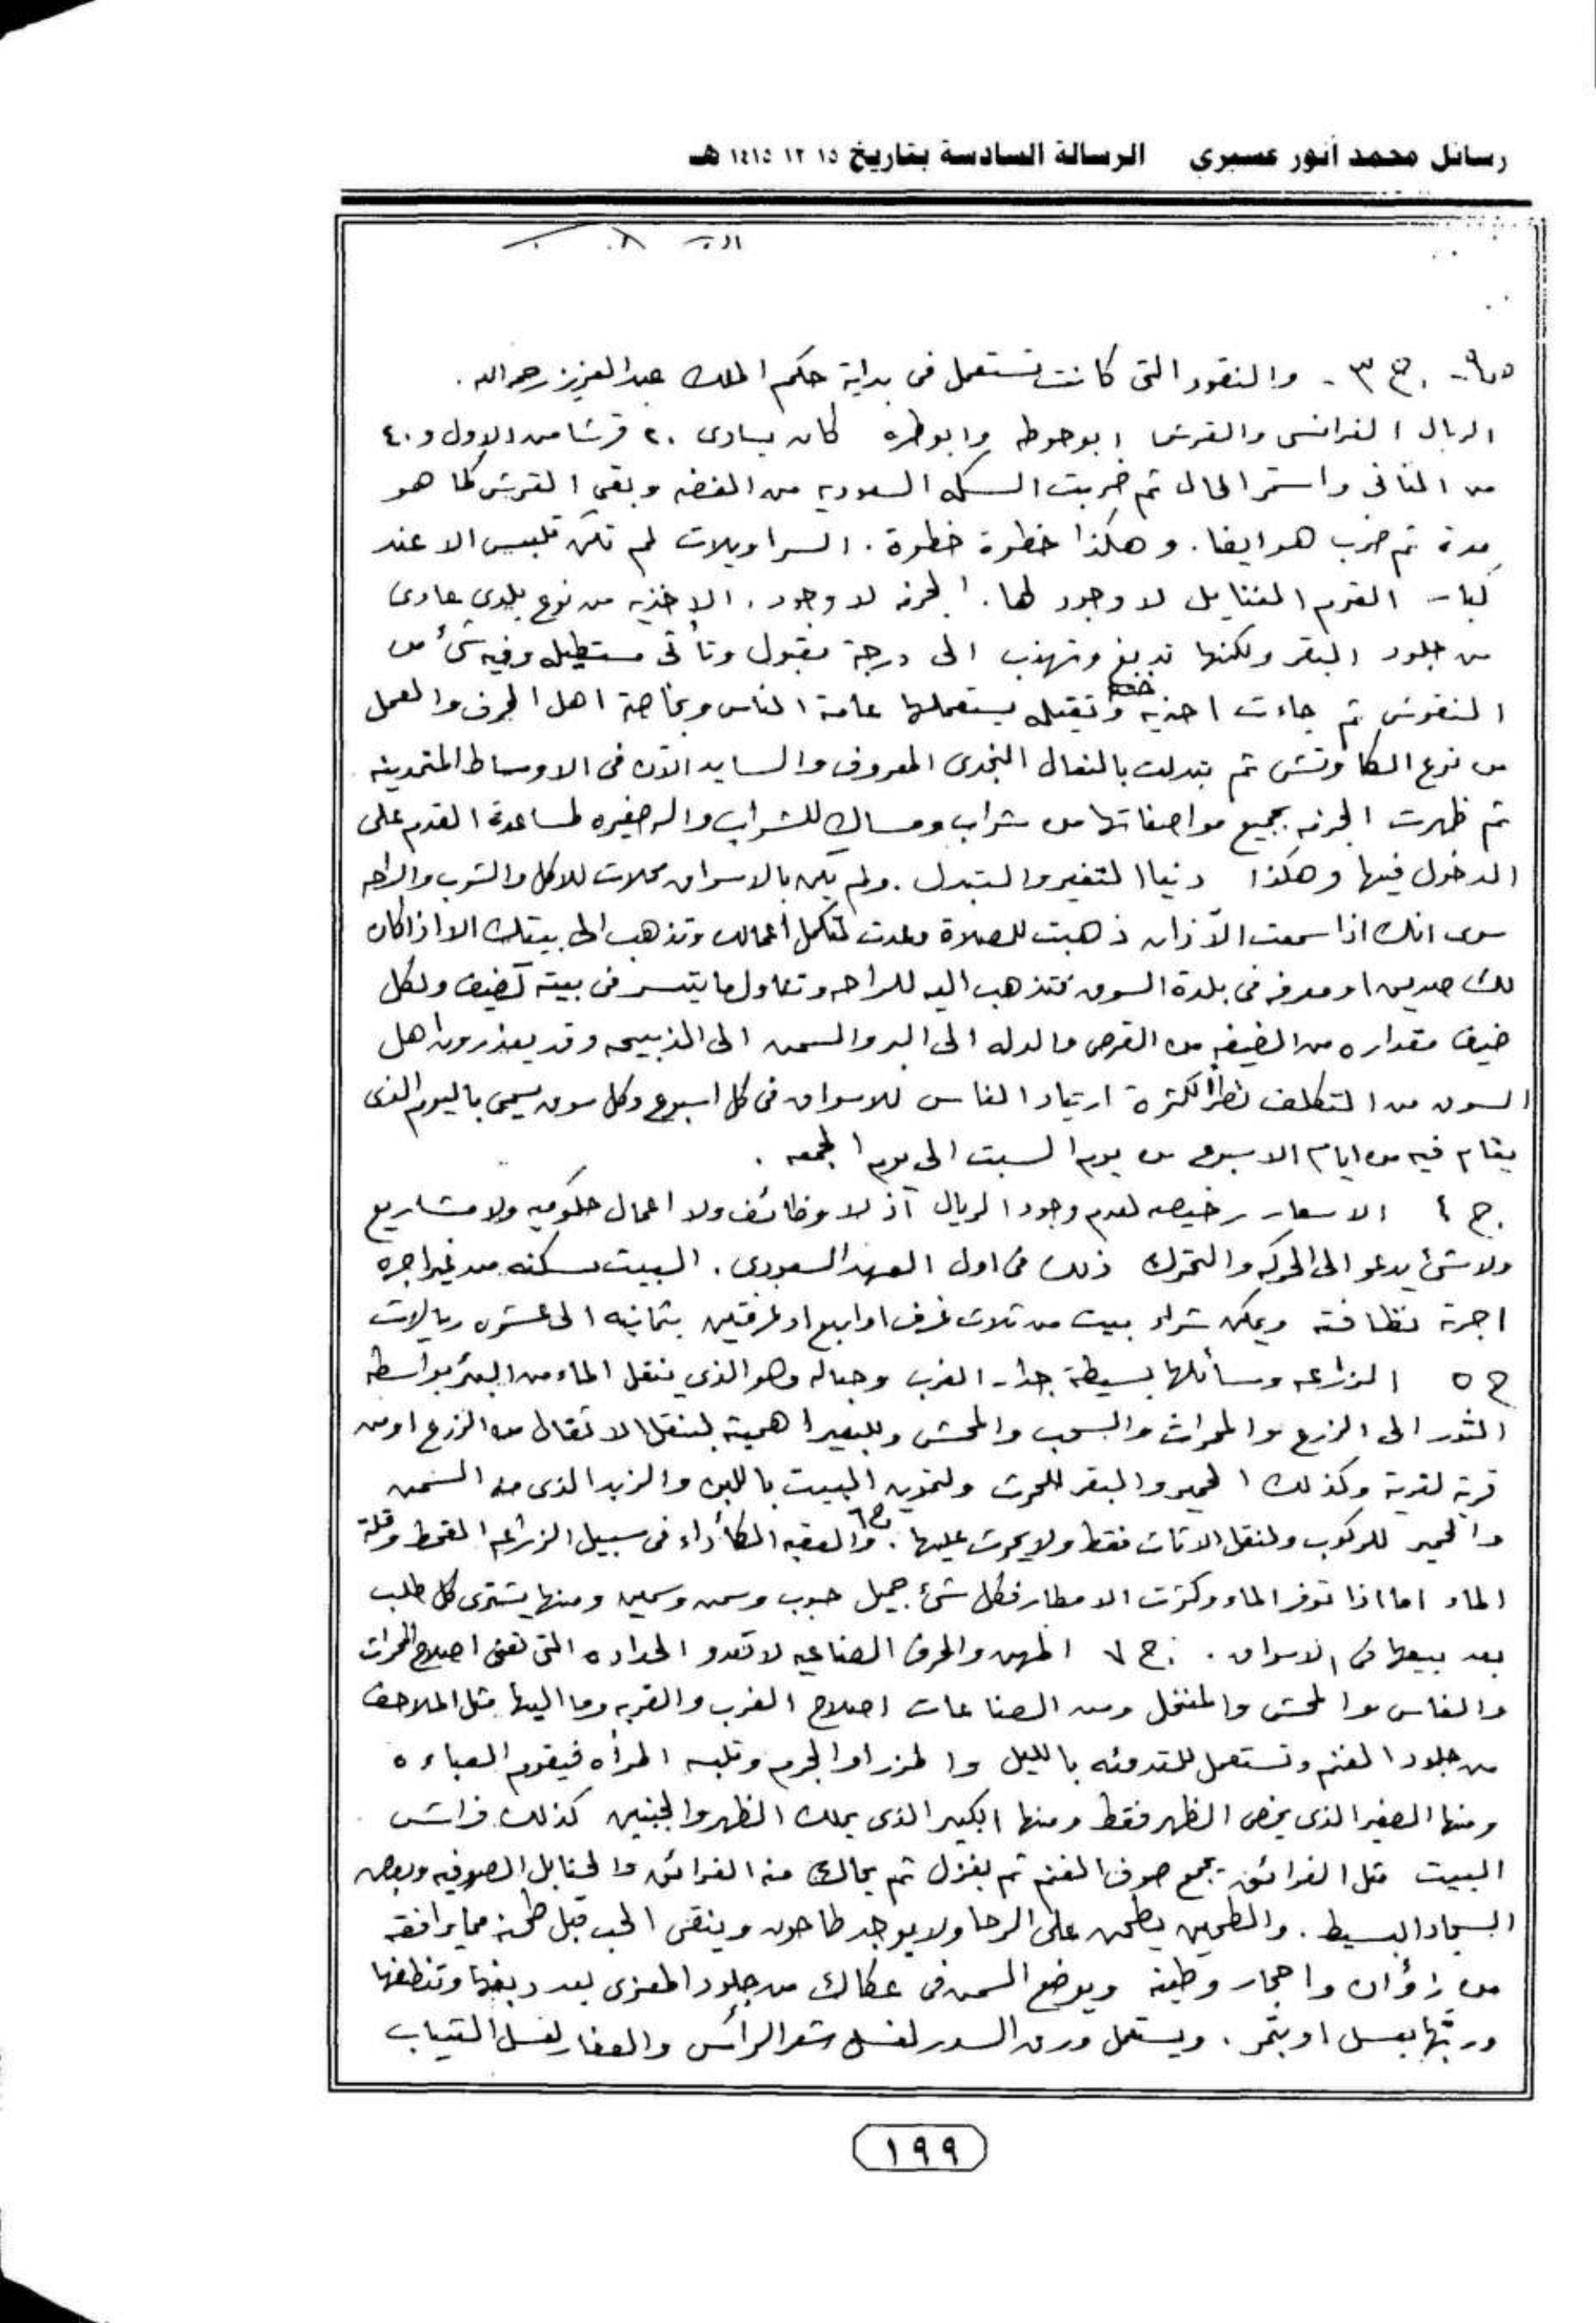 رسائل محمد أنور عسيري الرسالة السادسة بتاريخ ١٥ ١٢ ١٤١٥ هـ
ج ٣ - والنقود التى كانت تستعمل فى بداية حكم الملك عبدالعزيز رحمه الله .
الريال الفرانسى والقرش ابوحوطه وابوطره كان يساوى ٢٠ قرشا من الاول و ٤٠
من الثانى واستمر الحال ثم ضربت السكه السعوديه من الفضه وبقي القرش كما هو
مدة ثم ضرب هو ايضا . وهكذا خطوة خطوة . السراويلات لم تكن تلبس الا عند
كبار القوم الفنايل لا وجود لها . الجزمه لا وجود . الاحذيه من نوع بلدي عادى
من جلود البقر ولكنها تدبغ وتهذب الى درجة مقبول وتأتى مستطيله وفيه شئ من
النقوش ثم جاءت احذيه وثقيله يستعملها عامة الناس وبخاصة اهل الحرف والعمل
من نوع الكاوتش ثم تبدلت بالنعال النجدى المعروف والسايد الآن فى الاوساط المتمدينه
ثم ظهرت الجزمه بجميع مواصفاتها من شراب ومساك للشراب واله صغيره لمساعدة القدم على
الدخول فيها وهكذا دنيا التغير والتبدل . ولم يكن بالاسواق محلات للاكل والشرب والراحه
سوى انك اذا سمعت الآذان ذهبت للصلاة وعدت لتكمل أعمالك وتذهب الى بيتك الا اذا كان
لك صديق او معرفه فى بلدة السوق فتذهب اليه للراحه وتناول ما يتيسر فى بيته كضيف ولكل
ضيف مقداره من الضيفه من القرص والدله الى البر والسمن الى الذبيحه وقد يعذرون اهل
السوق من التكلف نظرا لكثرة ارتياد الناس للاسواق فى كل اسبوع وكل سوق يسمى باليوم الذى
يقام فيه من ايام الاسبوع من يوم السبت الى يوم الجمعه .
ج ٤ الاسعار رخيصه لعدم وجود الريال آذ لا وظائف ولا اعمال حكوميه ولا مشاريع
ولا شئ يدعو الى الحركه والتحرك ذلك فى اول العهد السعودى . البيت تسكنه من غير اجره
اجرته نظافته ويمكن شراء بيت من ثلاث غرف او اربع او غرفتين بثمانيه الى عشره ريالات
ج ٥ الزراعه وسائلها بسيطة جدا . الغرب وحباله وهو الذي ينقل الماء من البئر بواسطة
الثور الى الزرع والمحراث والسحب والمحش وللبعير اهمية لنقل الاثقال من الزرع او من
قرية لقرية وكذلك الحمير والبقر للحرث ولتموين البيت باللبن والزبد الذى منه السمن
والحمير للركوب ولنقل الاثاث فقط ولا يحرث عليها . ج٦ والعقبه الكأداء فى سبيل الزراعه القحط وقلة
الماء اما اذا توفر الماء وكثرت الامطار فكل شئ جميل حبوب وسمن وسمين ومنها يشترى كل طلب
بعد بيعها فى الاسواق . ج ٧ المهن والحرف الصناعيه لا تعدو الحداده التى تعنى اصلاح المحراث
والفاس والمحش والمنخل ومن الصناعات اصلاح الغرب والقربه وما اليها مثل الملاحف
من جلود الغنم وتستعمل للتدفئه بالليل والمزر او الجرم وتلبسه المرأه فيقوم العباءه
ومنها الصغير الذى يخص الظهر فقط ومنها الكبير الذى يملك الظهر والجنبين كذلك فراش
البيت مثل الفرائق يجمع صوف الغنم ثم يغزل ثم يحاك منه الفرائق والحنابل الصوفيه وبعض
السجاد البسيط . والطحين يطحن على الرحا ولا يوجد طاحون وينقى الحب قبل طحنه مما يرافقه
من زؤان واحجار وطينه ويوضع السمن فى عكاك من جلود المعزى بعد دبغها وتنظفها
وربّها بعسل او بتمر . ويستعمل ورق السدر لغسل شعر الرأس والعفار لغسل الثياب
١٩٩